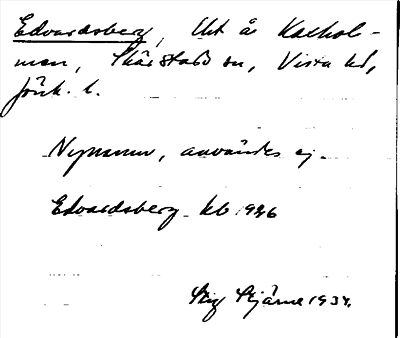 Edvardsberg, Utt å Kaxhol-
men, Skärstads sn, Vista hd,
Jönk. l.
Nynamn, användes ej.
Edvardsberg kb 1926
Stig Stjärne 1934.